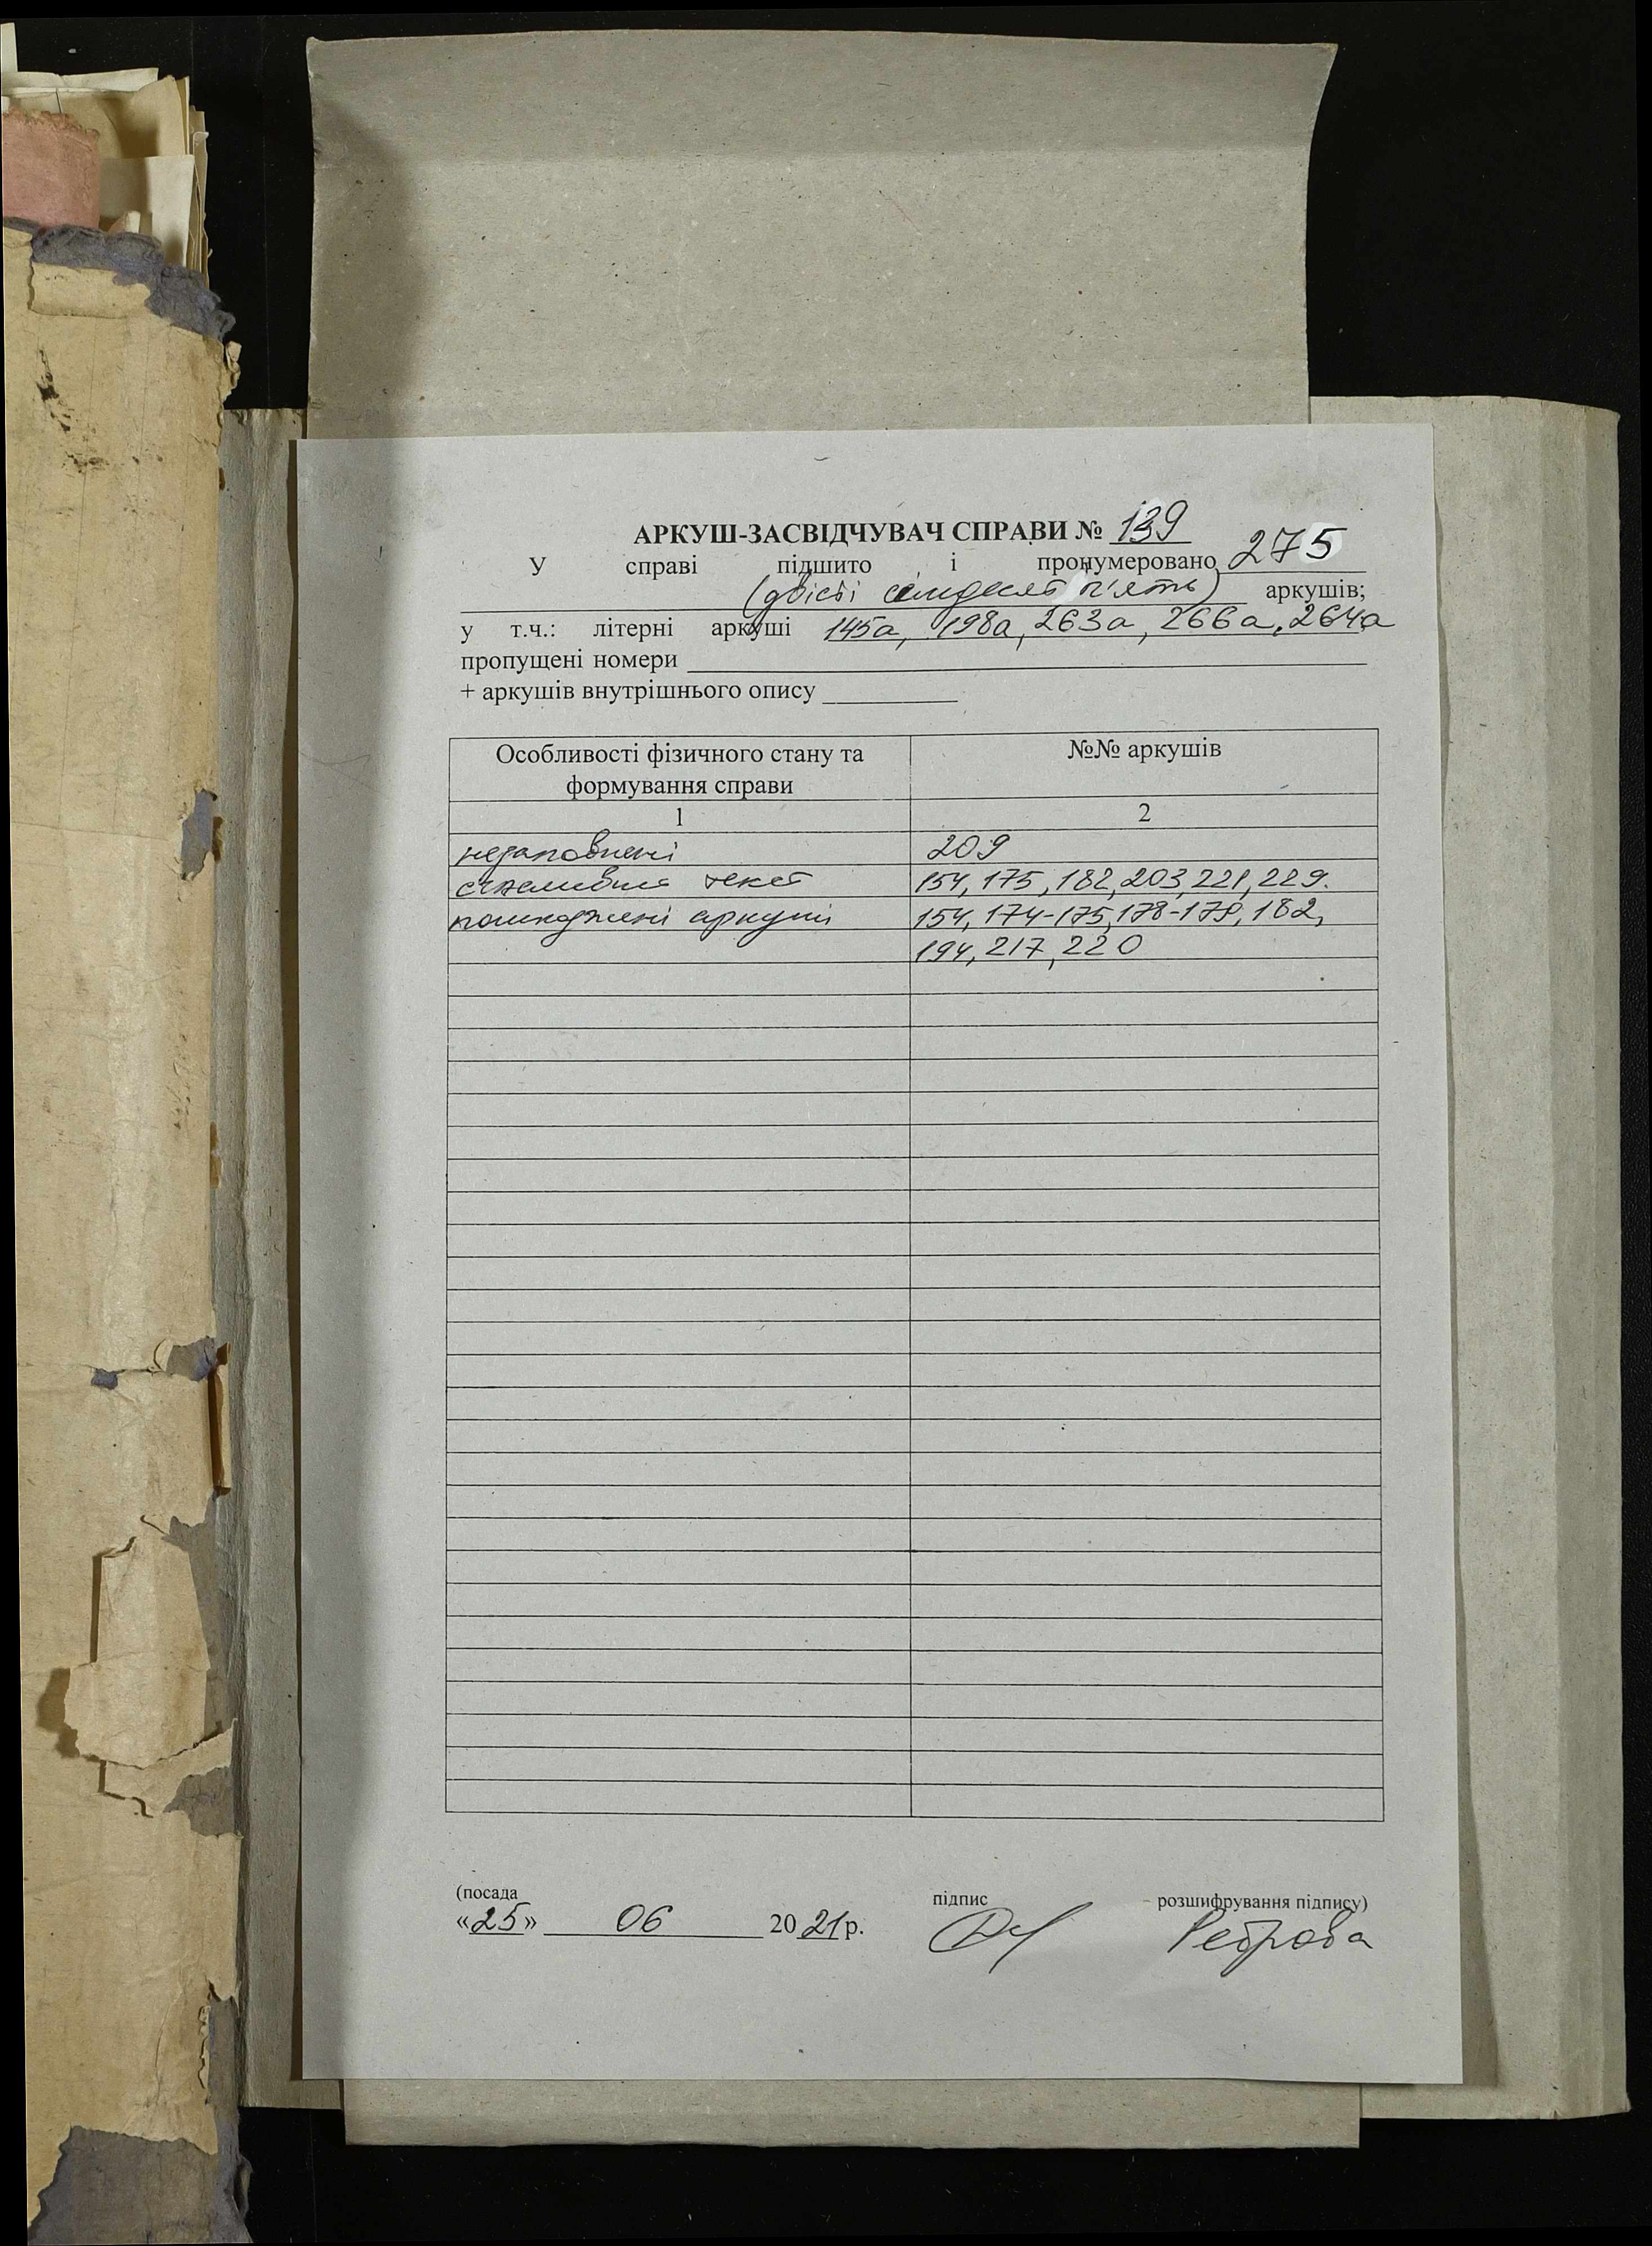 АРКУШ-ЗАСВІДЧУВАЧ СПРАВИ № 139
У справі підшито і пронумеровано 275
(двісті сімдесят п'ять) аркушів;
у т.ч.: літерні аркуші 145а, 198а, 263а, 266а, 264а
пропущені номери
+ аркушів внутрішнього опису
Особливості фізичного стану та формування справи №№ аркушів
1 2
незаповнені 209
текст 154, 175, 182, 203, 221, 229.
пошкоджені аркуші 154, 174-175, 178-179, 182,
194, 217, 220
(посада підпис розшифрування підпису)
«25» 06 2021 р. Реброва